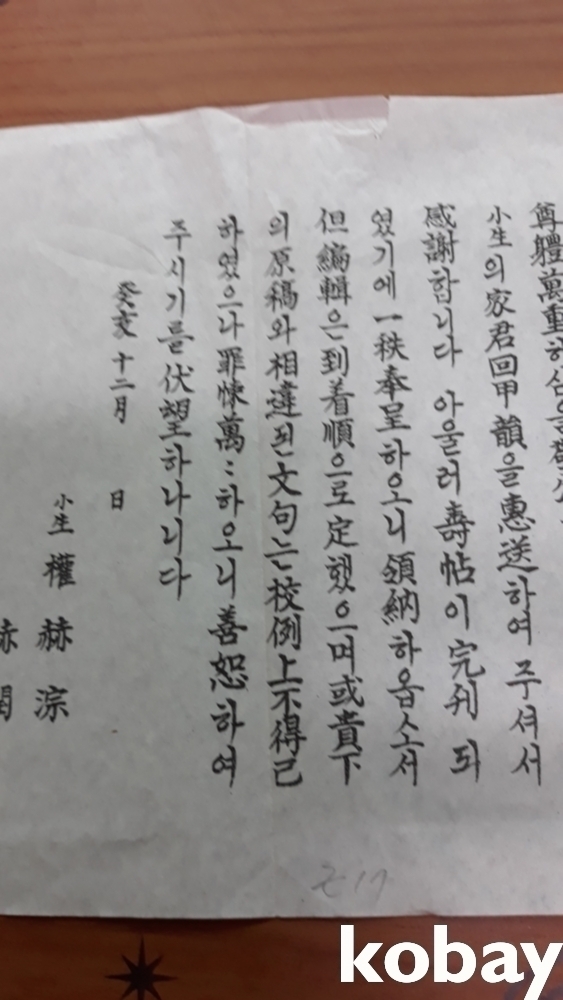 尊體萬重하심을
小生의 家君回甲韻을 惠送하여 주셔서
感謝합니다 아울러 壽帖이 完刊 되
였기에 一秩奉呈하오니 領納하옵소서
但編輯은 到着順으로 定했으며 或貴下
의 原稿와 相違된 文句는 校例上不得已
하였으나 罪悚萬〻하오니 善恕하여
주시기를 伏望하나니다
癸亥 十二月 日
小生 權 赫 淙
赫 閏
kobay